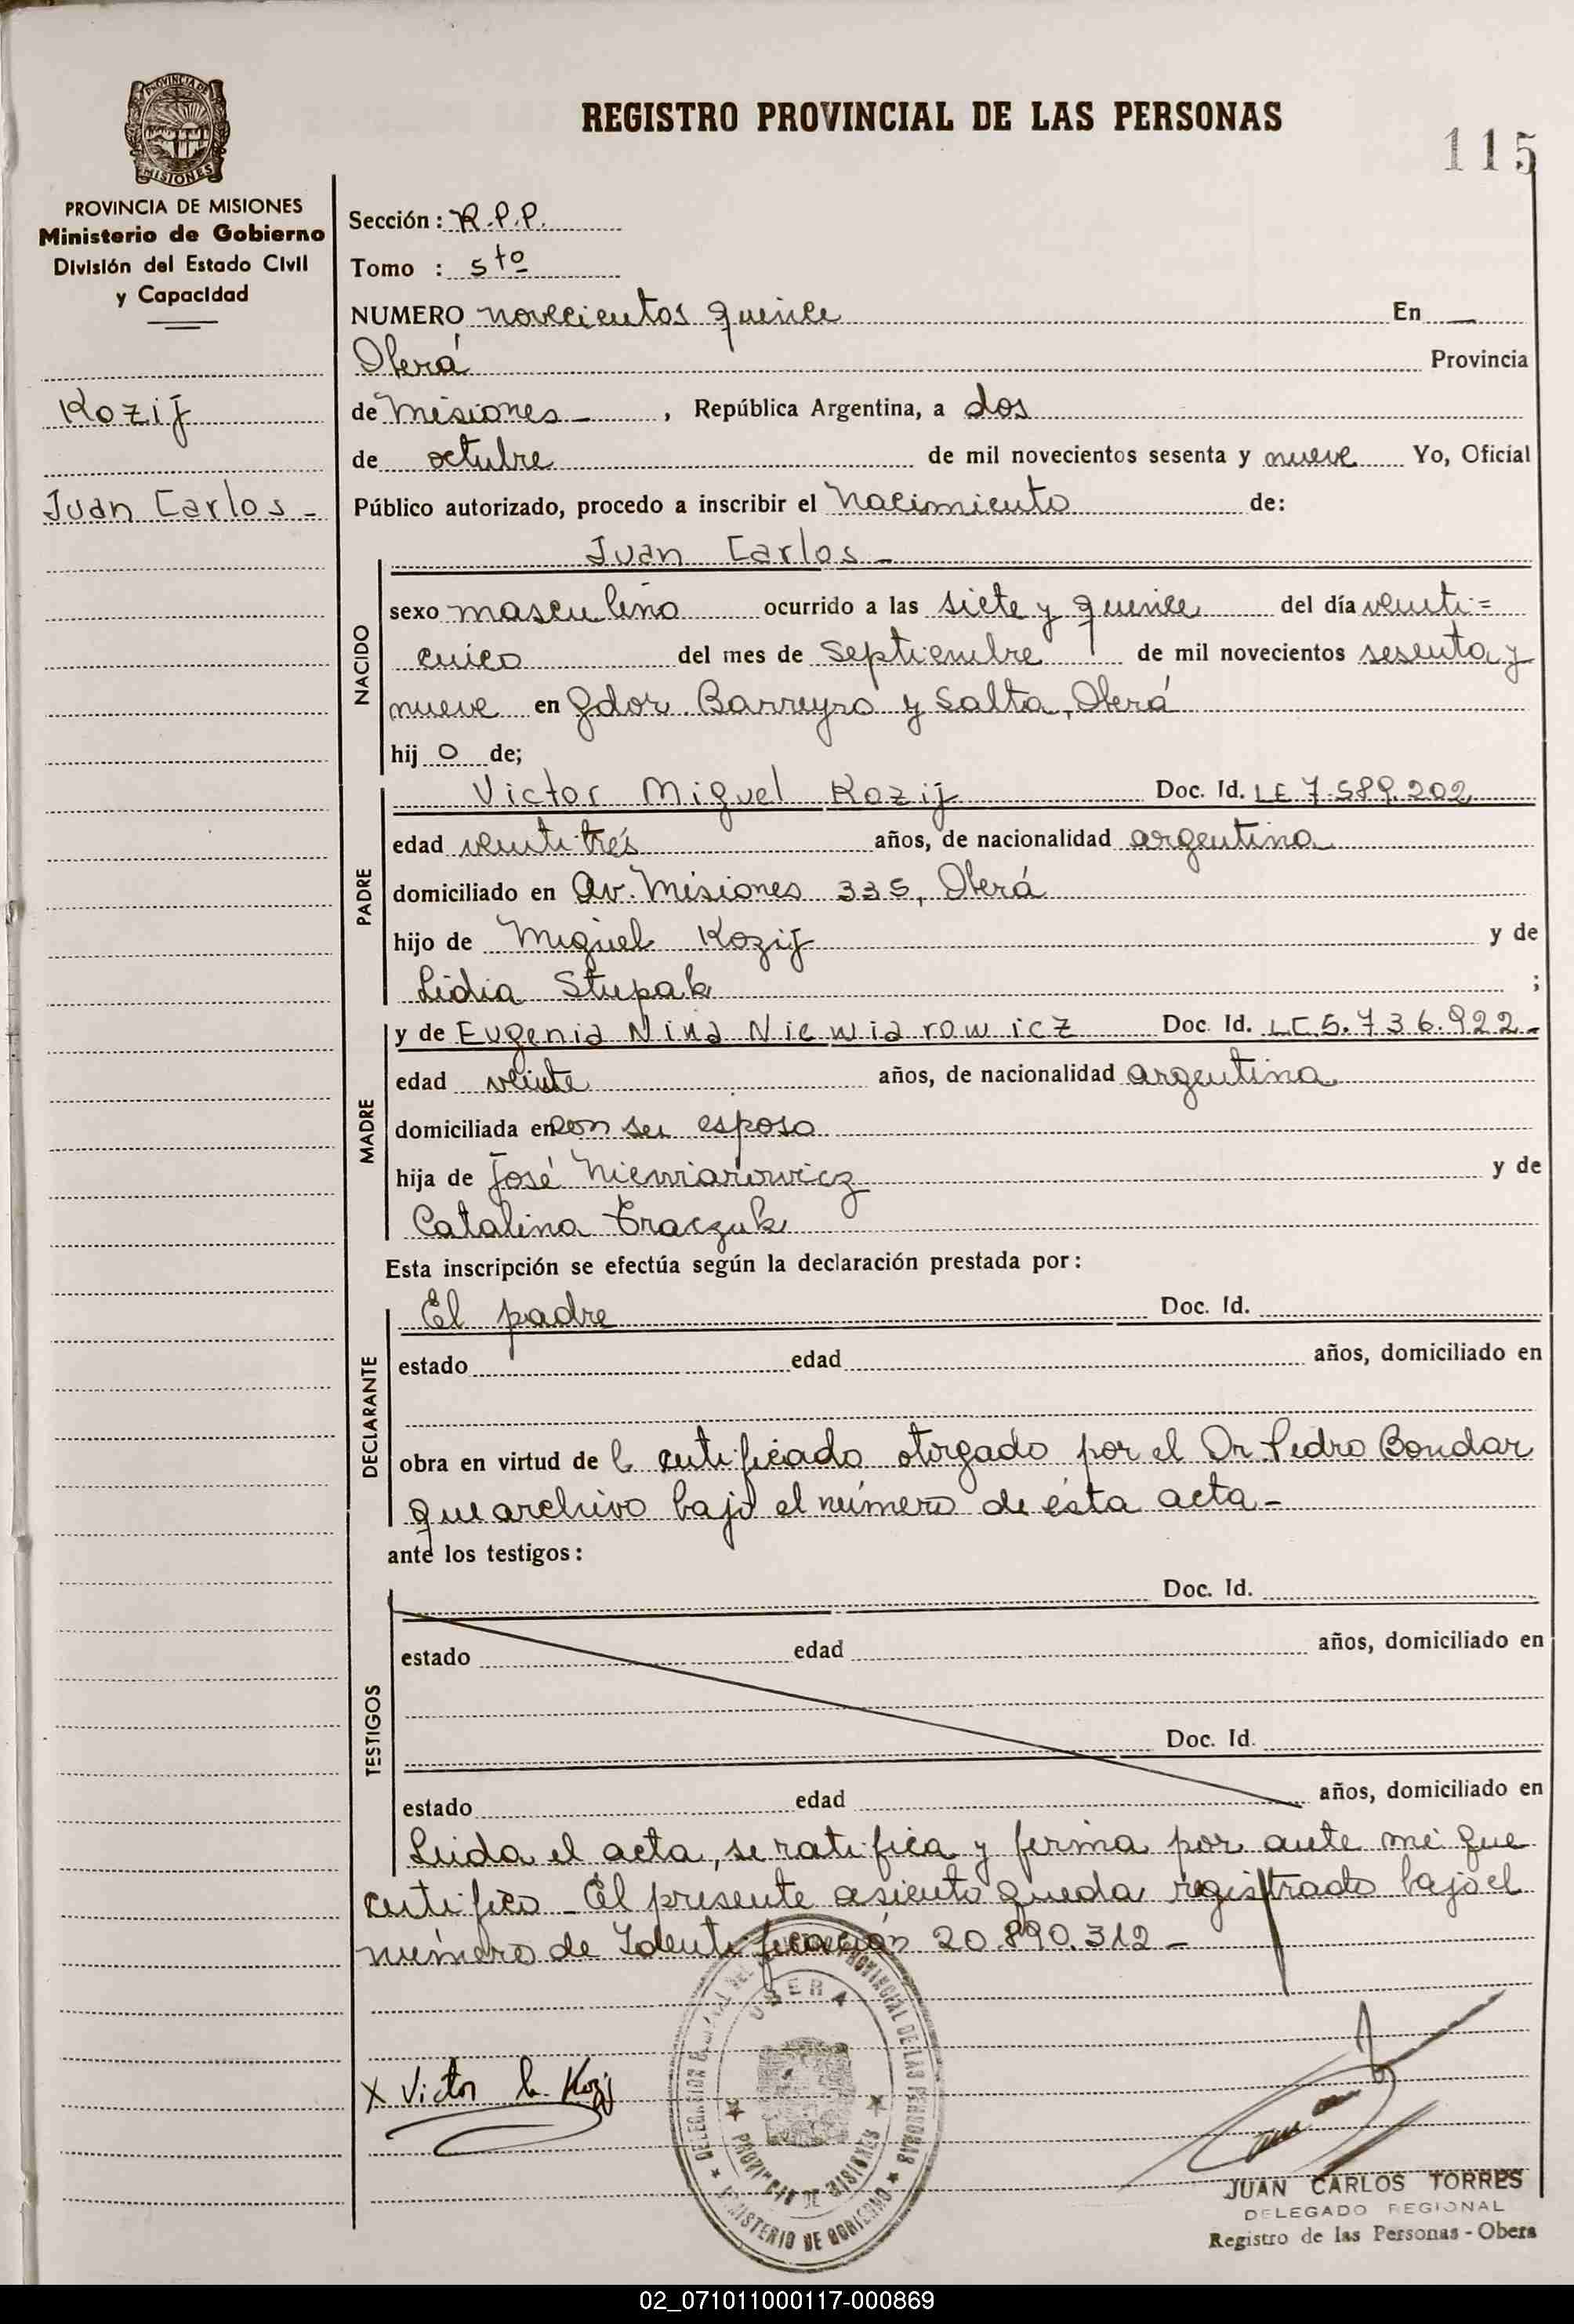 PROVINCIA DE
MISIONES
PROVINCIA DE MISIONES
Ministerio de Gobierno
División del Estado Civil
y Capacidad
Kozij
Juan Carlos -
REGISTRO PROVINCIAL DE LAS PERSONAS
115
Sección: R.P.P.
Tomo : 5to
NUMERO novecientos quince En —
Oberá Provincia
de Misiones - , República Argentina, a dos
de octubre de mil novecientos sesenta y nueve Yo, Oficial
Público autorizado, procedo a inscribir el Nacimiento de:
Juan Carlos -
NACIDO
sexo masculino ocurrido a las siete y quince del día veinti=
cinco del mes de Septiembre de mil novecientos sesenta y
nueve en Gdor Barreyro y Salta, Oberá
hij o de;
PADRE
Victor Miguel Kozij Doc. Id. LE 7.589.202
edad veintitrés años, de nacionalidad argentina
domiciliado en Av. Misiones 335, Oberá
hijo de Miguel Kozij y de
Lidia Stupak ;
MADRE
y de Eugenia Nina Niewiarowicz Doc. Id. LC 5.736.922-
edad veinte años, de nacionalidad argentina
domiciliada en con su esposo
hija de José Niewiarowicz y de
Catalina Traczuk
Esta inscripción se efectúa según la declaración prestada por:
DECLARANTE
El padre Doc. Id.
estado edad años, domiciliado en
obra en virtud de l certificado otorgado por el Dr. Pedro Bondar
que archivo bajo el número de ésta acta -
ante los testigos:
TESTIGOS
Doc. Id.
estado edad años, domiciliado en
Doc. Id.
estado edad años, domiciliado en
Leida el acta, se ratifica y firma por ante mi que
certifico - El presente asiento queda registrado bajo el
número de Identificación 20.890.312 -
OBERA
PROVINCIAL DE LAS PERSONAS
PROVINCIA DE MISIONES
MINISTERIO DE GOBIERNO
X Victor M. Kozij
JUAN CARLOS TORRES
DELEGADO REGIONAL
Registro de las Personas - Obera
02_071011000117-000869